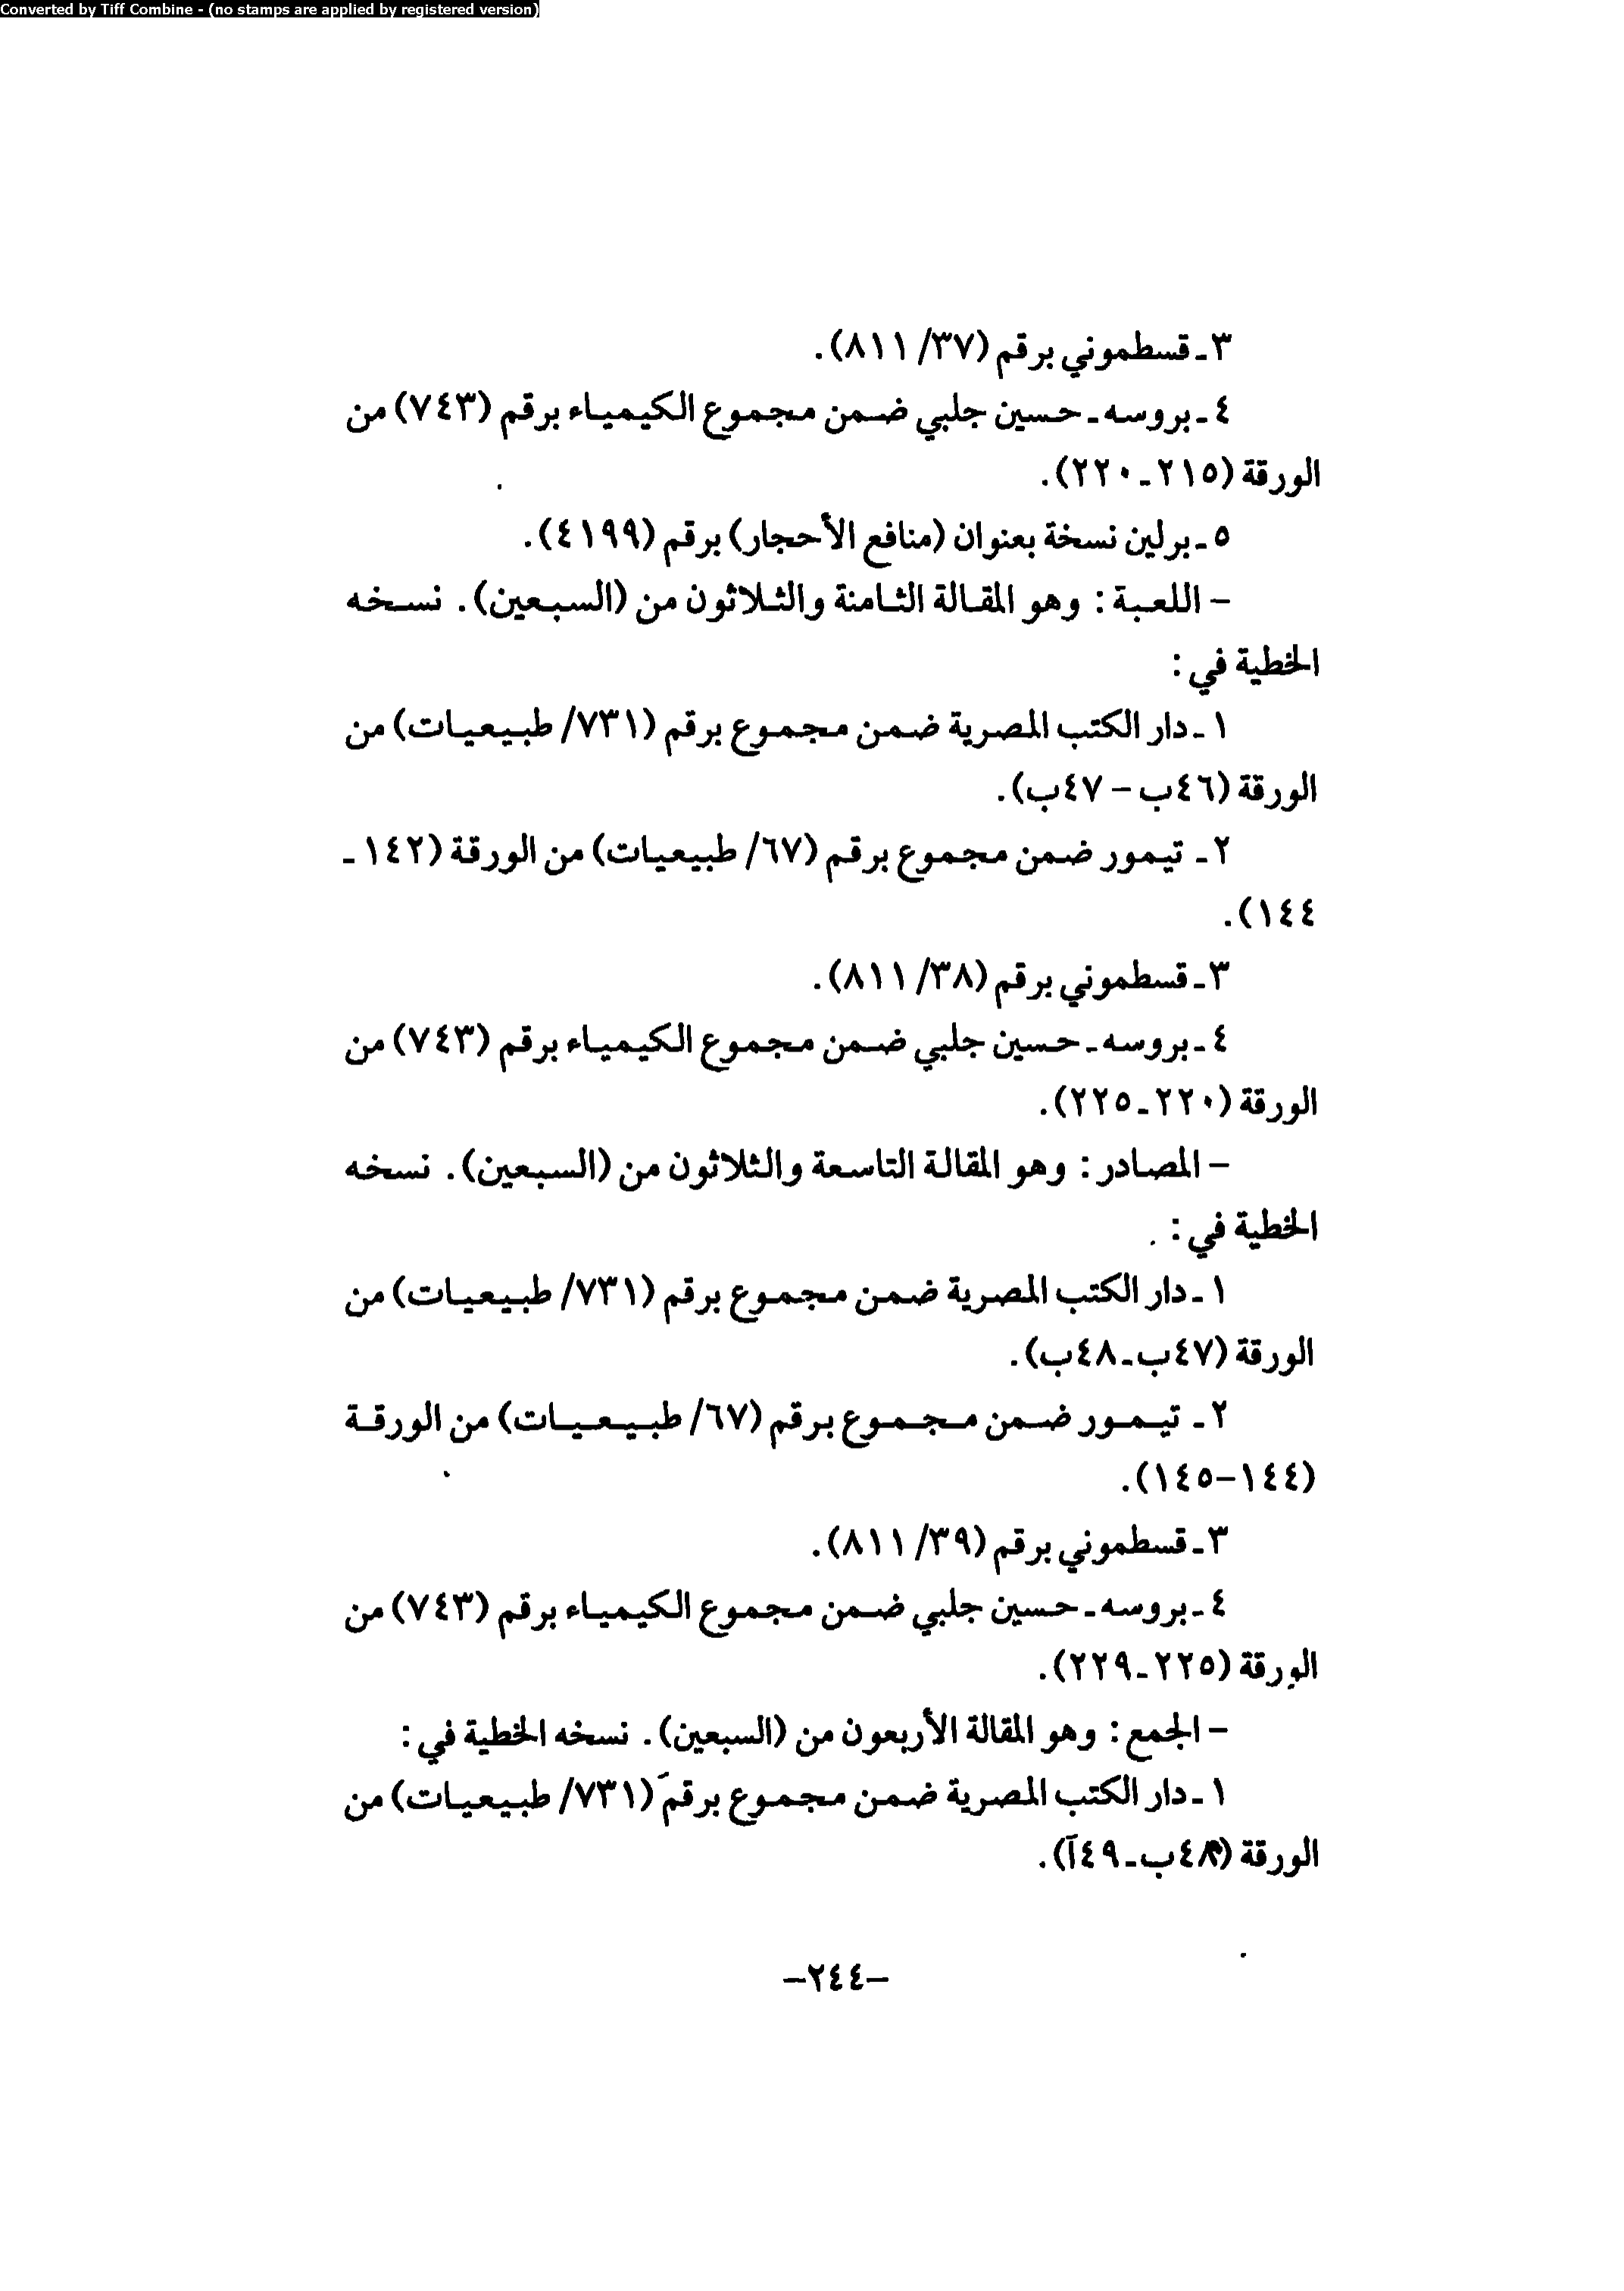 Converted by Tiff Combine - (no stamps are applied by registered version)
٣ـ قسطموني برقم (٣٧/ ٨١١).
٤ـ بروسه ـ حسين جلبي ضمن مجموع الكيمياء برقم (٧٤٣) من
الورقة (٢١٥ـ ٢٢٠).
٥ـ برلين نسخة بعنوان (منافع الأحجار) برقم (٤١٩٩).
– اللعبة : وهو المقالة الثامنة والثلاثون من (السبعين). نسخه
الخطية في :
١ـ دار الكتب المصرية ضمن مجموع برقم (٧٣١/ طبيعيات) من
الورقة (٤٦ب – ٤٧ب).
٢ـ تيمور ضمن مجموع برقم (٦٧/ طبيعيات) من الورقة (١٤٢ ـ
١٤٤).
٣ـ قسطموني برقم (٣٨/ ٨١١).
٤ـ بروسه ـ حسين جلبي ضمن مجموع الكيمياء برقم (٧٤٣) من
الورقة (٢٢٠ـ ٢٢٥).
– المصادر : وهو المقالة التاسعة والثلاثون من (السبعين). نسخه
الخطية في :
١ـ دار الكتب المصرية ضمن مجموع برقم (٧٣١/ طبيعيات) من
الورقة (٤٧ب ـ ٤٨ب).
٢ـ تيمور ضمن مجموع برقم (٦٧/ طبيعيات) من الورقة
(١٤٤–١٤٥).
٣ـ قسطموني برقم (٣٩/ ٨١١).
٤ـ بروسه ـ حسين جلبي ضمن مجموع الكيمياء برقم (٧٤٣) من
الورقة (٢٢٥ـ ٢٢٩).
– الجمع : وهو المقالة الأربعون من (السبعين). نسخه الخطية في :
١ـ دار الكتب المصرية ضمن مجموع برقم (٧٣١/ طبيعيات) من
الورقة (٤٨ب ـ ٤٩آ).
–٢٤٤–